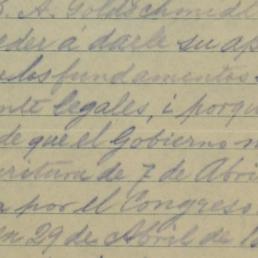 S. A. Goldschmidt
eder á darle su ap
los fundamentos
nte legales, i porqu
de que el Gobierno n
ritura de 7 de Abri
a por el Congreso
en 29 de Abril de 1